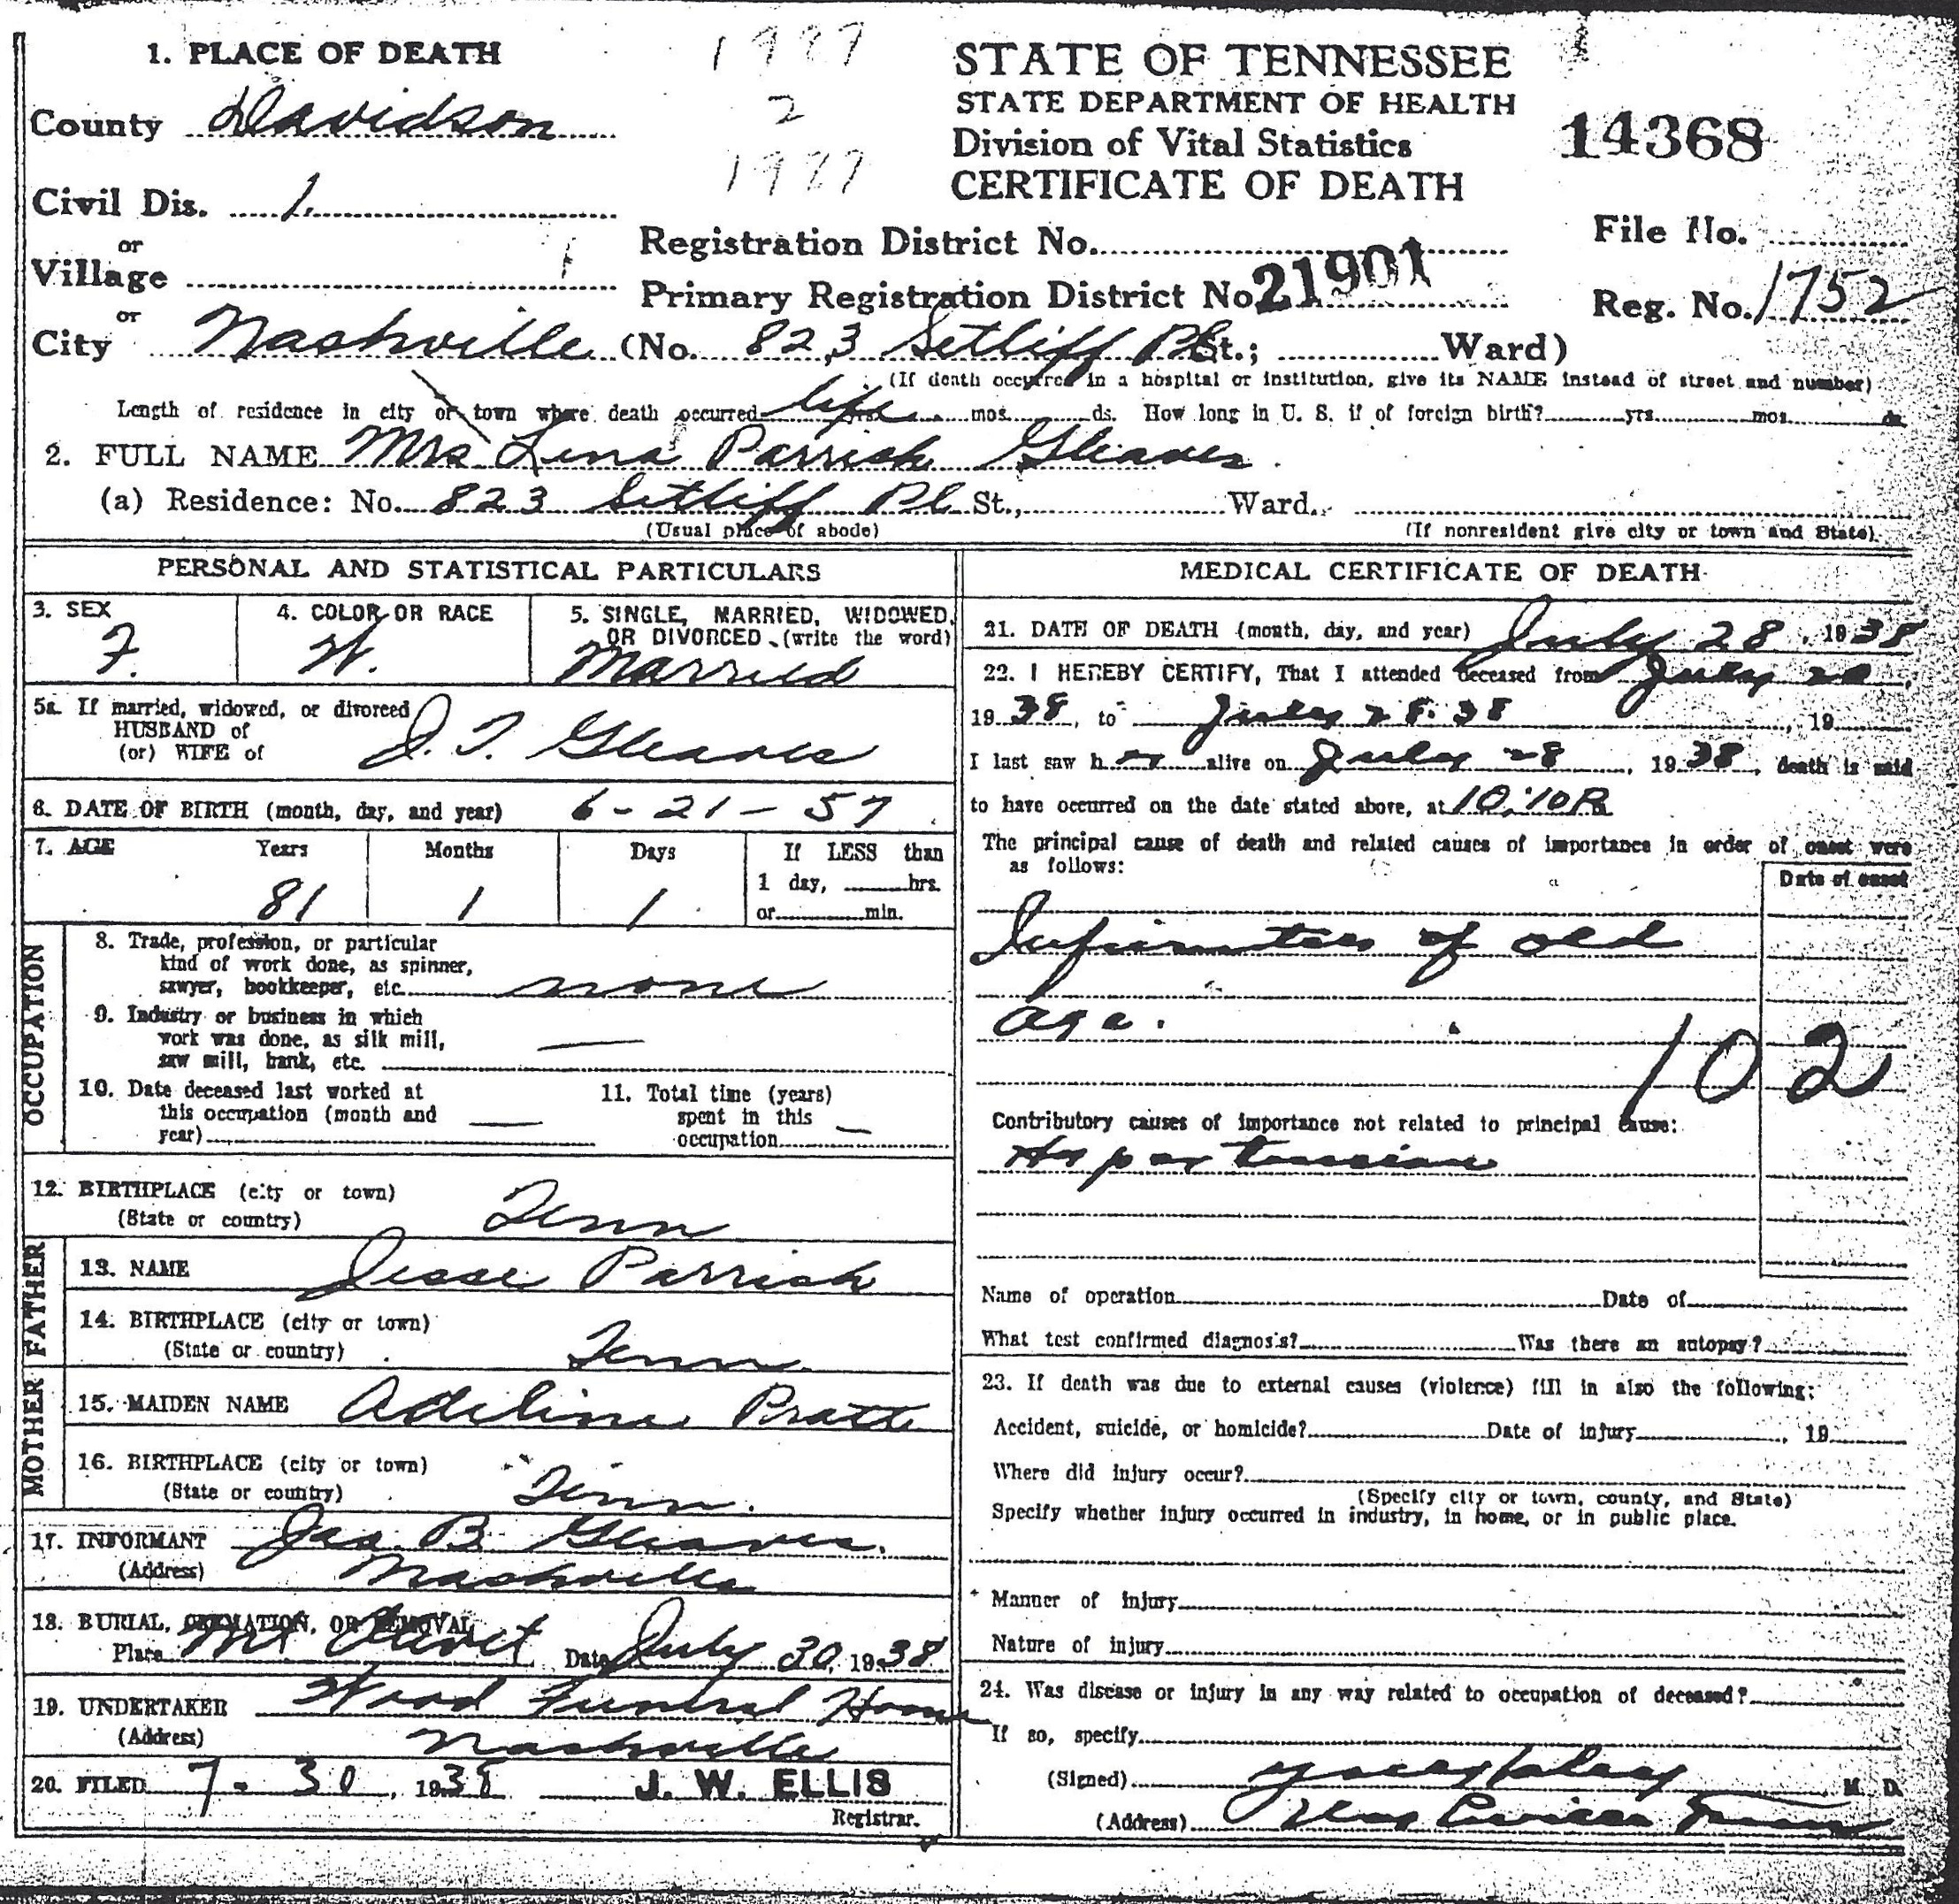 1. PLACE OF DEATH
County Davidson
Civil Dis. 1
or
Village
or
City Nashville (No. 823 Setliff Pl St.; Ward)
STATE OF TENNESSEE
STATE DEPARTMENT OF HEALTH
Division of Vital Statistics
CERTIFICATE OF DEATH
14368
Registration District No.
Primary Registration District No. 21901
File No.
Reg. No. 1752
(If death occurred in a hospital or institution, give its NAME instead of street and number)
Length of residence in city or town where death occurred life yrs. mos. ds. How long in U. S. if of foreign birth? yrs. mos. ds.
2. FULL NAME Mrs Lena Parrish Gleaves
(a) Residence: No. 823 Setliff Pl St., Ward.
(Usual place of abode) (If nonresident give city or town and State)
PERSONAL AND STATISTICAL PARTICULARS
3. SEX F.
4. COLOR OR RACE W.
5. SINGLE, MARRIED, WIDOWED, OR DIVORCED (write the word) Married
5a. If married, widowed, or divorced
HUSBAND of
(or) WIFE of J. T. Gleaves
6. DATE OF BIRTH (month, day, and year) 6-21-57
7. AGE Years Months Days If LESS than
81 1 1 1 day, hrs.
or min.
OCCUPATION
8. Trade, profession, or particular
kind of work done, as spinner,
sawyer, bookkeeper, etc. none
9. Industry or business in which
work was done, as silk mill,
saw mill, bank, etc. —
10. Date deceased last worked at
this occupation (month and
year) —
11. Total time (years)
spent in this
occupation —
12. BIRTHPLACE (city or town)
(State or country) Tenn
FATHER
13. NAME Jesse Parrish
14. BIRTHPLACE (city or town)
(State or country) Tenn
MOTHER
15. MAIDEN NAME Adeline Pratt
16. BIRTHPLACE (city or town)
(State or country) Tenn.
17. INFORMANT B. Gleaves.
(Address) Nashville
18. BURIAL, CREMATION, OR REMOVAL
Place Mt Olivet Date July 30, 1938
19. UNDERTAKER Wood Funeral Home
(Address) Nashville
20. FILED 7-30, 1938 J. W. ELLIS
Registrar.
MEDICAL CERTIFICATE OF DEATH
21. DATE OF DEATH (month, day, and year) July 28, 1938
22. I HEREBY CERTIFY, That I attended deceased from July 20,
1938, to July 28. 38, 19
I last saw her alive on July 28, 1938, death is said
to have occurred on the date stated above, at 10:10 P.
The principal cause of death and related causes of importance in order of onset were
as follows:
Date of onset
Infirmities of old
age.
102
Contributory causes of importance not related to principal cause:
Hypertension
Name of operation Date of
What test confirmed diagnosis? Was there an autopsy?
23. If death was due to external causes (violence) fill in also the following:
Accident, suicide, or homicide? Date of injury , 19
Where did injury occur?
(Specify city or town, county, and State)
Specify whether injury occurred in industry, in home, or in public place.
Manner of injury
Nature of injury
24. Was disease or injury in any way related to occupation of deceased?
If so, specify
(Signed) M. D.
(Address)